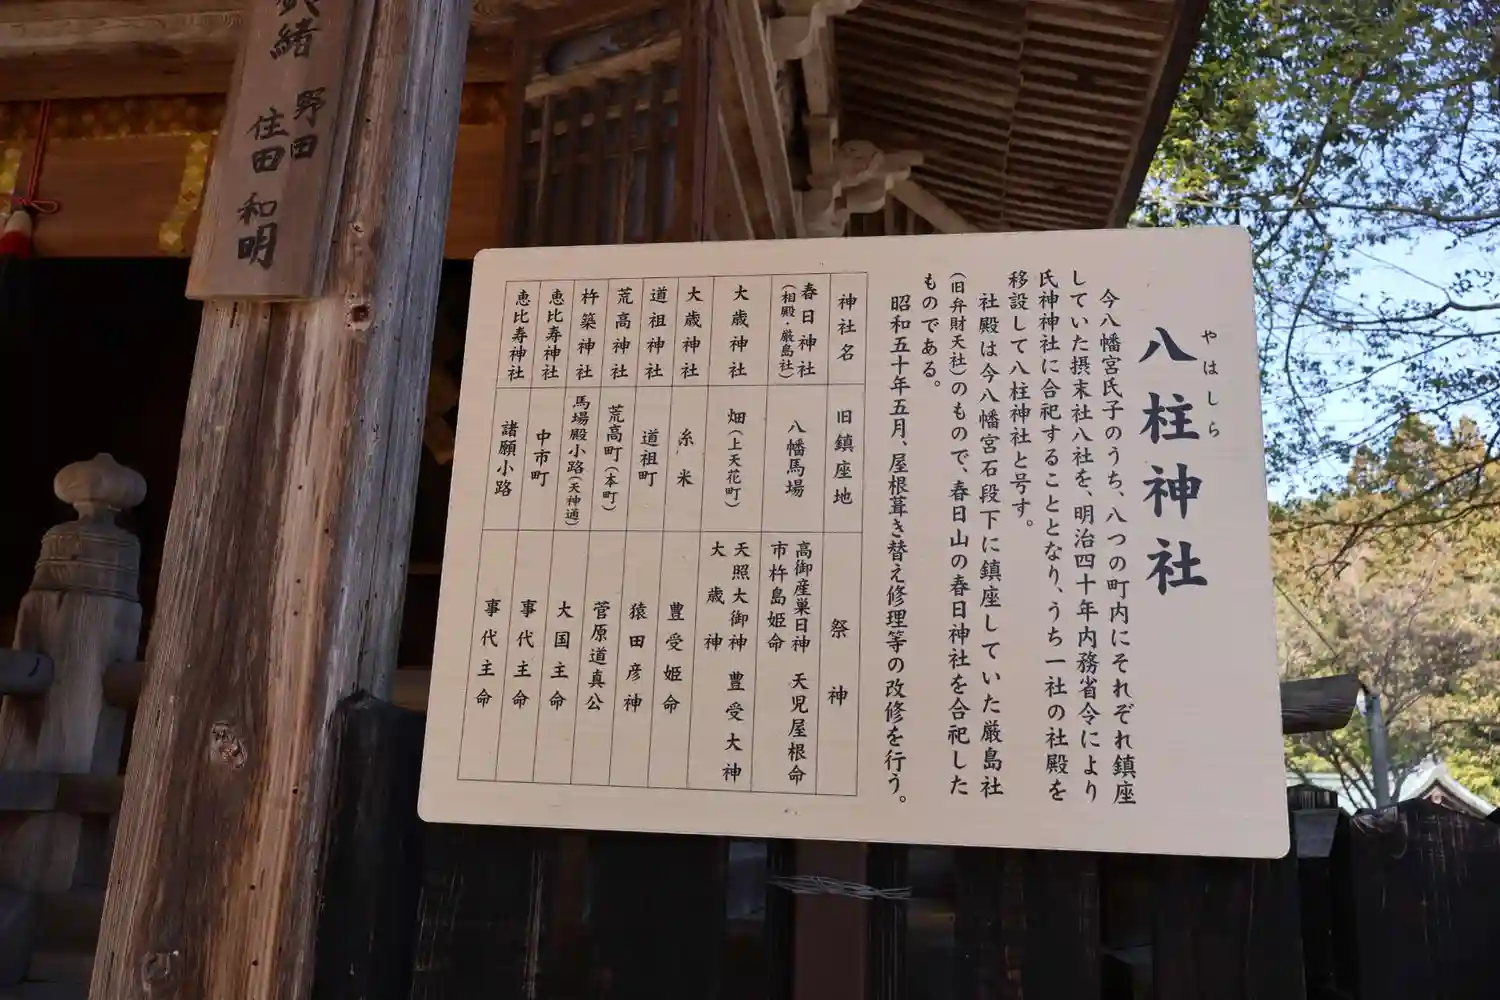 八柱神社
やはしら
今八幡宮氏子のうち、八つの町内にそれぞれ鎮座
していた摂末社八社を、明治四十年内務省令により
氏神神社に合祀することとなり、うち一社の社殿を
移設して八柱神社と号す。
社殿は今八幡宮石段下に鎮座していた厳島社
（旧弁財天社）のもので、春日山の春日神社を合祀した
ものである。
昭和五十年五月、屋根葺き替え修理等の改修を行う。
神社名
旧鎮座地
祭神
春日神社
（相殿・厳島社）
八幡馬場
高御産巣日神 天児屋根命
市杵島姫命
大歳神社
畑（上天花町）
天照大御神 豊受大神
大歳神
大歳神社
糸米
豊受姫命
道祖神社
道祖町
猿田彦神
荒高神社
荒高町（本町）
菅原道真公
杵築神社
馬場殿小路（天神通）
大国主命
恵比寿神社
中市町
事代主命
恵比寿神社
諸願小路
事代主命
緒
野田
住田和明